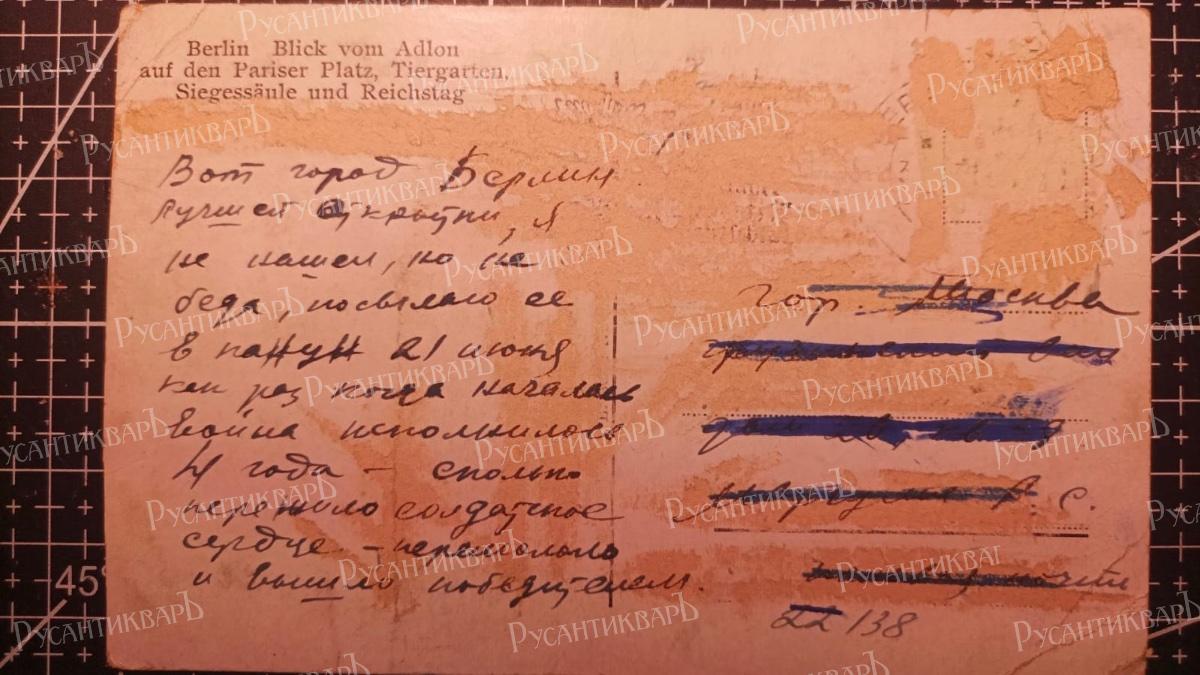 Berlin Blick vom Adlon
auf den Pariser Platz, Tiergarten,
Siegessäule und Reichstag
Вот город Берлин.
Лучшей открытки, я
не нашел, но не
беда, посылаю ее
в канун 21 июня
как раз когда началась
война исполнилось
4 года - сколько
пережило солдатское
сердце - перемололо
и вышло победителем.
гор. Москва
С.
138
РусАнтикварЪ